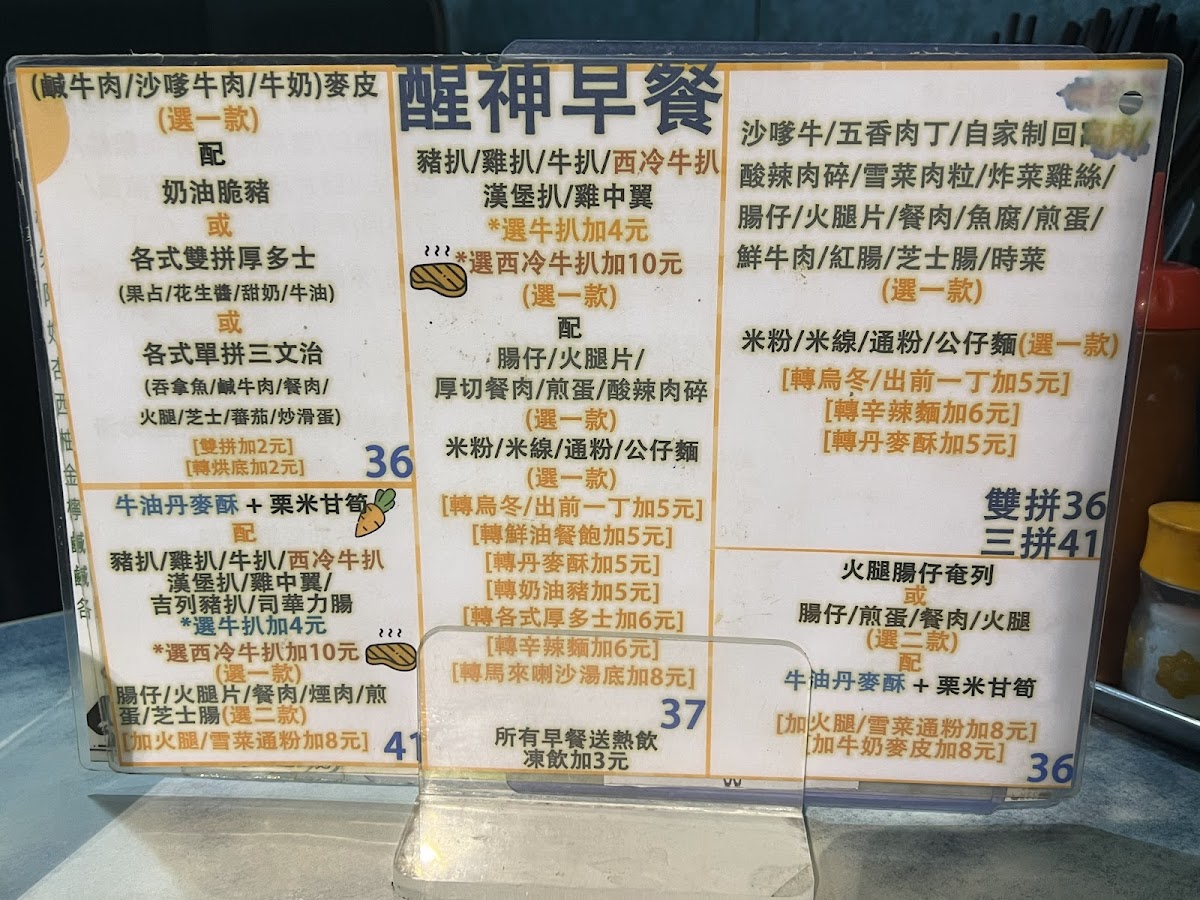 醒神早餐
(鹹牛肉/沙嗲牛肉/牛奶)麥皮
(選一款)
配
奶油脆豬
或
各式雙拼厚多士
(果占/花生醬/甜奶/牛油)
或
各式單拼三文治
(吞拿魚/鹹牛肉/餐肉/
火腿/芝士/蕃茄/炒滑蛋)
[雙拼加2元]
[轉烘底加2元]
36
牛油丹麥酥 + 栗米甘筍
配
豬扒/雞扒/牛扒/西冷牛扒
漢堡扒/雞中翼/
吉列豬扒/司華力腸
*選牛扒加4元
*選西冷牛扒加10元
(選一款)
腸仔/火腿片/餐肉/煙肉/煎
蛋/芝士腸(選二款)
[加火腿/雪菜通粉加8元]
41
豬扒/雞扒/牛扒/西冷牛扒
漢堡扒/雞中翼
*選牛扒加4元
*選西冷牛扒加10元
(選一款)
配
腸仔/火腿片/
厚切餐肉/煎蛋/酸辣肉碎
(選一款)
米粉/米線/通粉/公仔麵
(選一款)
[轉烏冬/出前一丁加5元]
[轉鮮油餐飽加5元]
[轉丹麥酥加5元]
[轉奶油豬加5元]
[轉各式厚多士加6元]
[轉辛辣麵加6元]
[轉馬來喇沙湯底加8元]
37
所有早餐送熱飲
凍飲加3元
沙嗲牛/五香肉丁/自家制回鍋肉/
酸辣肉碎/雪菜肉粒/炸菜雞絲/
腸仔/火腿片/餐肉/魚腐/煎蛋/
鮮牛肉/紅腸/芝士腸/時菜
(選一款)
米粉/米線/通粉/公仔麵(選一款)
[轉烏冬/出前一丁加5元]
[轉辛辣麵加6元]
[轉丹麥酥加5元]
雙拼36
三拼41
火腿腸仔奄列
或
腸仔/煎蛋/餐肉/火腿
(選二款)
配
牛油丹麥酥 + 栗米甘筍
[加火腿/雪菜通粉加8元]
[加牛奶麥皮加8元]
36